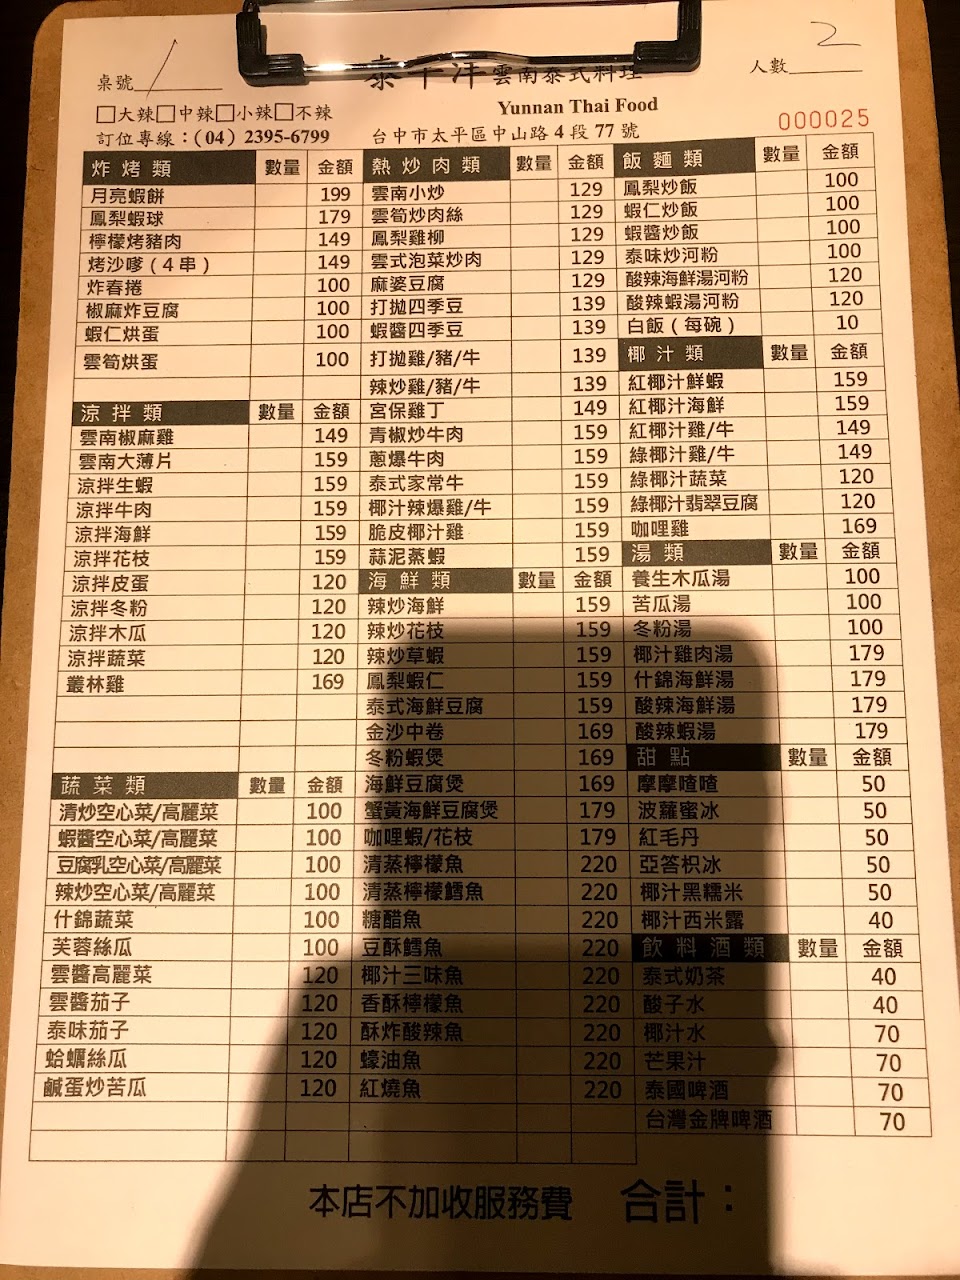 桌號 1
泰平洋雲南泰式料理
人數 2
□大辣□中辣□小辣□不辣
Yunnan Thai Food
訂位專線：(04) 2395-6799
台中市太平區中山路4段77號
000025
炸烤類 數量 金額
月亮蝦餅 199
鳳梨蝦球 179
檸檬烤豬肉 149
烤沙嗲（4串） 149
炸春捲 100
椒麻炸豆腐 100
蝦仁烘蛋 100
雲筍烘蛋 100
涼拌類 數量 金額
雲南椒麻雞 149
雲南大薄片 159
涼拌生蝦 159
涼拌牛肉 159
涼拌海鮮 159
涼拌花枝 159
涼拌皮蛋 120
涼拌冬粉 120
涼拌木瓜 120
涼拌蔬菜 120
叢林雞 169
蔬菜類 數量 金額
清炒空心菜/高麗菜 100
蝦醬空心菜/高麗菜 100
豆腐乳空心菜/高麗菜 100
辣炒空心菜/高麗菜 100
什錦蔬菜 100
芙蓉絲瓜 100
雲醬高麗菜 120
雲醬茄子 120
泰味茄子 120
蛤蠣絲瓜 120
鹹蛋炒苦瓜 120
熱炒肉類 數量 金額
雲南小炒 129
雲筍炒肉絲 129
鳳梨雞柳 129
雲式泡菜炒肉 129
麻婆豆腐 129
打拋四季豆 139
蝦醬四季豆 139
打拋雞/豬/牛 139
辣炒雞/豬/牛 139
宮保雞丁 149
青椒炒牛肉 159
蔥爆牛肉 159
泰式家常牛 159
椰汁辣爆雞/牛 159
脆皮椰汁雞 159
蒜泥蒸蝦 159
海鮮類 數量 金額
辣炒海鮮 159
辣炒花枝 159
辣炒草蝦 159
鳳梨蝦仁 159
泰式海鮮豆腐 159
金沙中卷 169
冬粉蝦煲 169
海鮮豆腐煲 169
蟹黃海鮮豆腐煲 179
咖哩蝦/花枝 179
清蒸檸檬魚 220
清蒸檸檬鱈魚 220
糖醋魚 220
豆酥鱈魚 220
椰汁三味魚 220
香酥檸檬魚 220
酥炸酸辣魚 220
蠔油魚 220
紅燒魚 220
飯麵類 數量 金額
鳳梨炒飯 100
蝦仁炒飯 100
蝦醬炒飯 100
泰味炒河粉 100
酸辣海鮮湯河粉 120
酸辣蝦湯河粉 120
白飯（每碗） 10
椰汁類 數量 金額
紅椰汁鮮蝦 159
紅椰汁海鮮 159
紅椰汁雞/牛 149
綠椰汁雞/牛 149
綠椰汁蔬菜 120
綠椰汁翡翠豆腐 120
咖哩雞 169
湯類 數量 金額
養生木瓜湯 100
苦瓜湯 100
冬粉湯 100
椰汁雞肉湯 179
什錦海鮮湯 179
酸辣海鮮湯 179
酸辣蝦湯 179
甜點 數量 金額
摩摩喳喳 50
波蘿蜜冰 50
紅毛丹 50
亞答枳冰 50
椰汁黑糯米 50
椰汁西米露 40
飲料酒類 數量 金額
泰式奶茶 40
酸子水 40
椰汁水 70
芒果汁 70
泰國啤酒 70
台灣金牌啤酒 70
本店不加收服務費 合計：